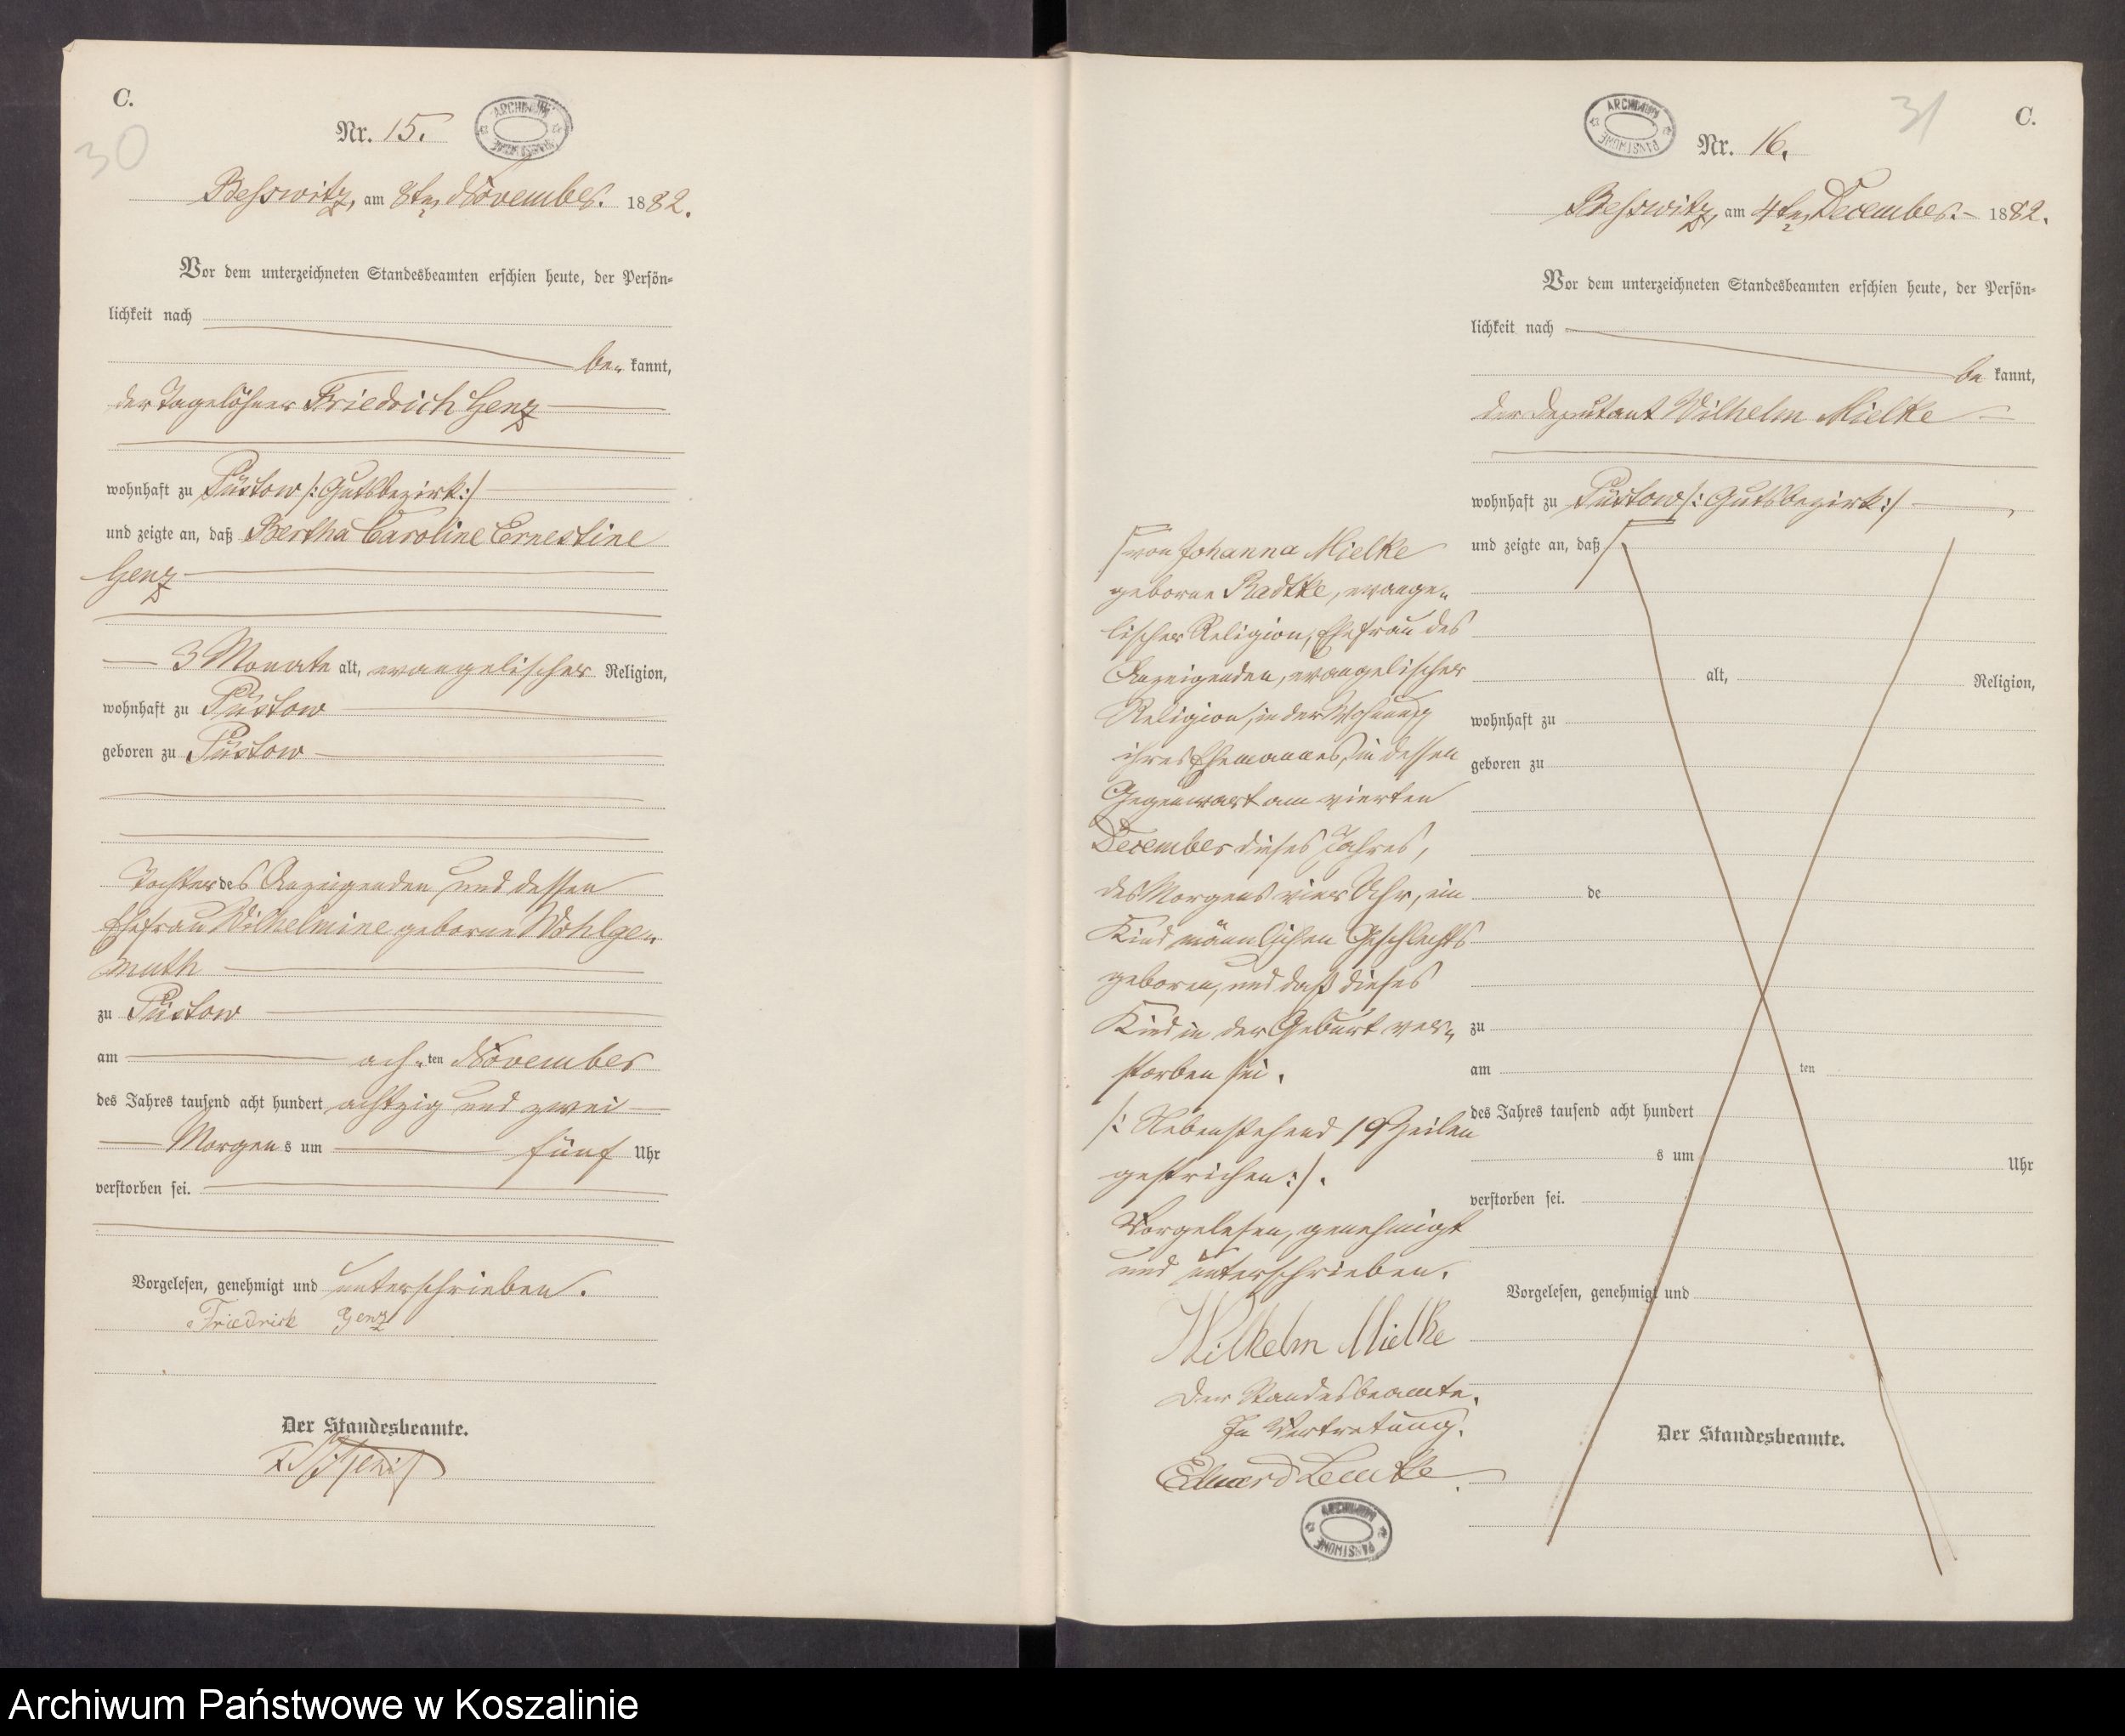 C.
30
Nr. 15.
ARCHIWUM PAŃSTWOWE
Besswitz, am 8ten November. 1882.
Vor dem unterzeichneten Standesbeamten erschien heute, der Persön-
lichkeit nach
be- kannt,
der Tagelöhner Friedrich Genz
wohnhaft zu Püstow /: Gutsbezirk :/
und zeigte an, daß Bertha Caroline Ernestine
Genz
3 Monate alt, evangelischer Religion,
wohnhaft zu Püstow
geboren zu Püstow
Tochter des Anzeigenden und dessen
Ehefrau Wilhelmine geborne Wohlge-
muth
zu Püstow
am ach-ten November
des Jahres tausend acht hundert achtzig und zwei
Morgens um fünf Uhr
verstorben sei.
Vorgelesen, genehmigt und unterschrieben.
Friedrick Genz
Der Standesbeamte.
31
C.
ARCHIWUM PAŃSTWOWE
Nr. 16.
Besswitz, am 4ten December. 1882.
Vor dem unterzeichneten Standesbeamten erschien heute, der Persön-
lichkeit nach
be kannt,
der Deputant Wilhelm Mielke
wohnhaft zu Püstow /: Gutsbezirk :/
und zeigte an, daß
alt, Religion,
wohnhaft zu
geboren zu
de
zu
am ten
des Jahres tausend acht hundert
s um Uhr
verstorben sei.
Vorgelesen, genehmigt und
Der Standesbeamte.
von Johanna Mielke
geborne Radtke, evange-
lischer Religion, Ehefrau des
Anzeigenden, evangelischer
Religion, in der Wohnung
ihres Ehemannes, in dessen
Gegenwart am vierten
December dieses Jahres,
des Morgens vier Uhr, ein
Kind männlichen Geschlechts
geboren, und daß dieses
Kind in der Geburt ver-
storben sei.
/: Nebenstehend 19 Zeilen
gestrichen :/.
Vorgelesen, genehmigt
und unterschrieben.
Wilhelm Mielke
Der Standesbeamte.
In Vertretung.
Eduard Lemke
ARCHIWUM PAŃSTWOWE
Archiwum Państwowe w Koszalinie